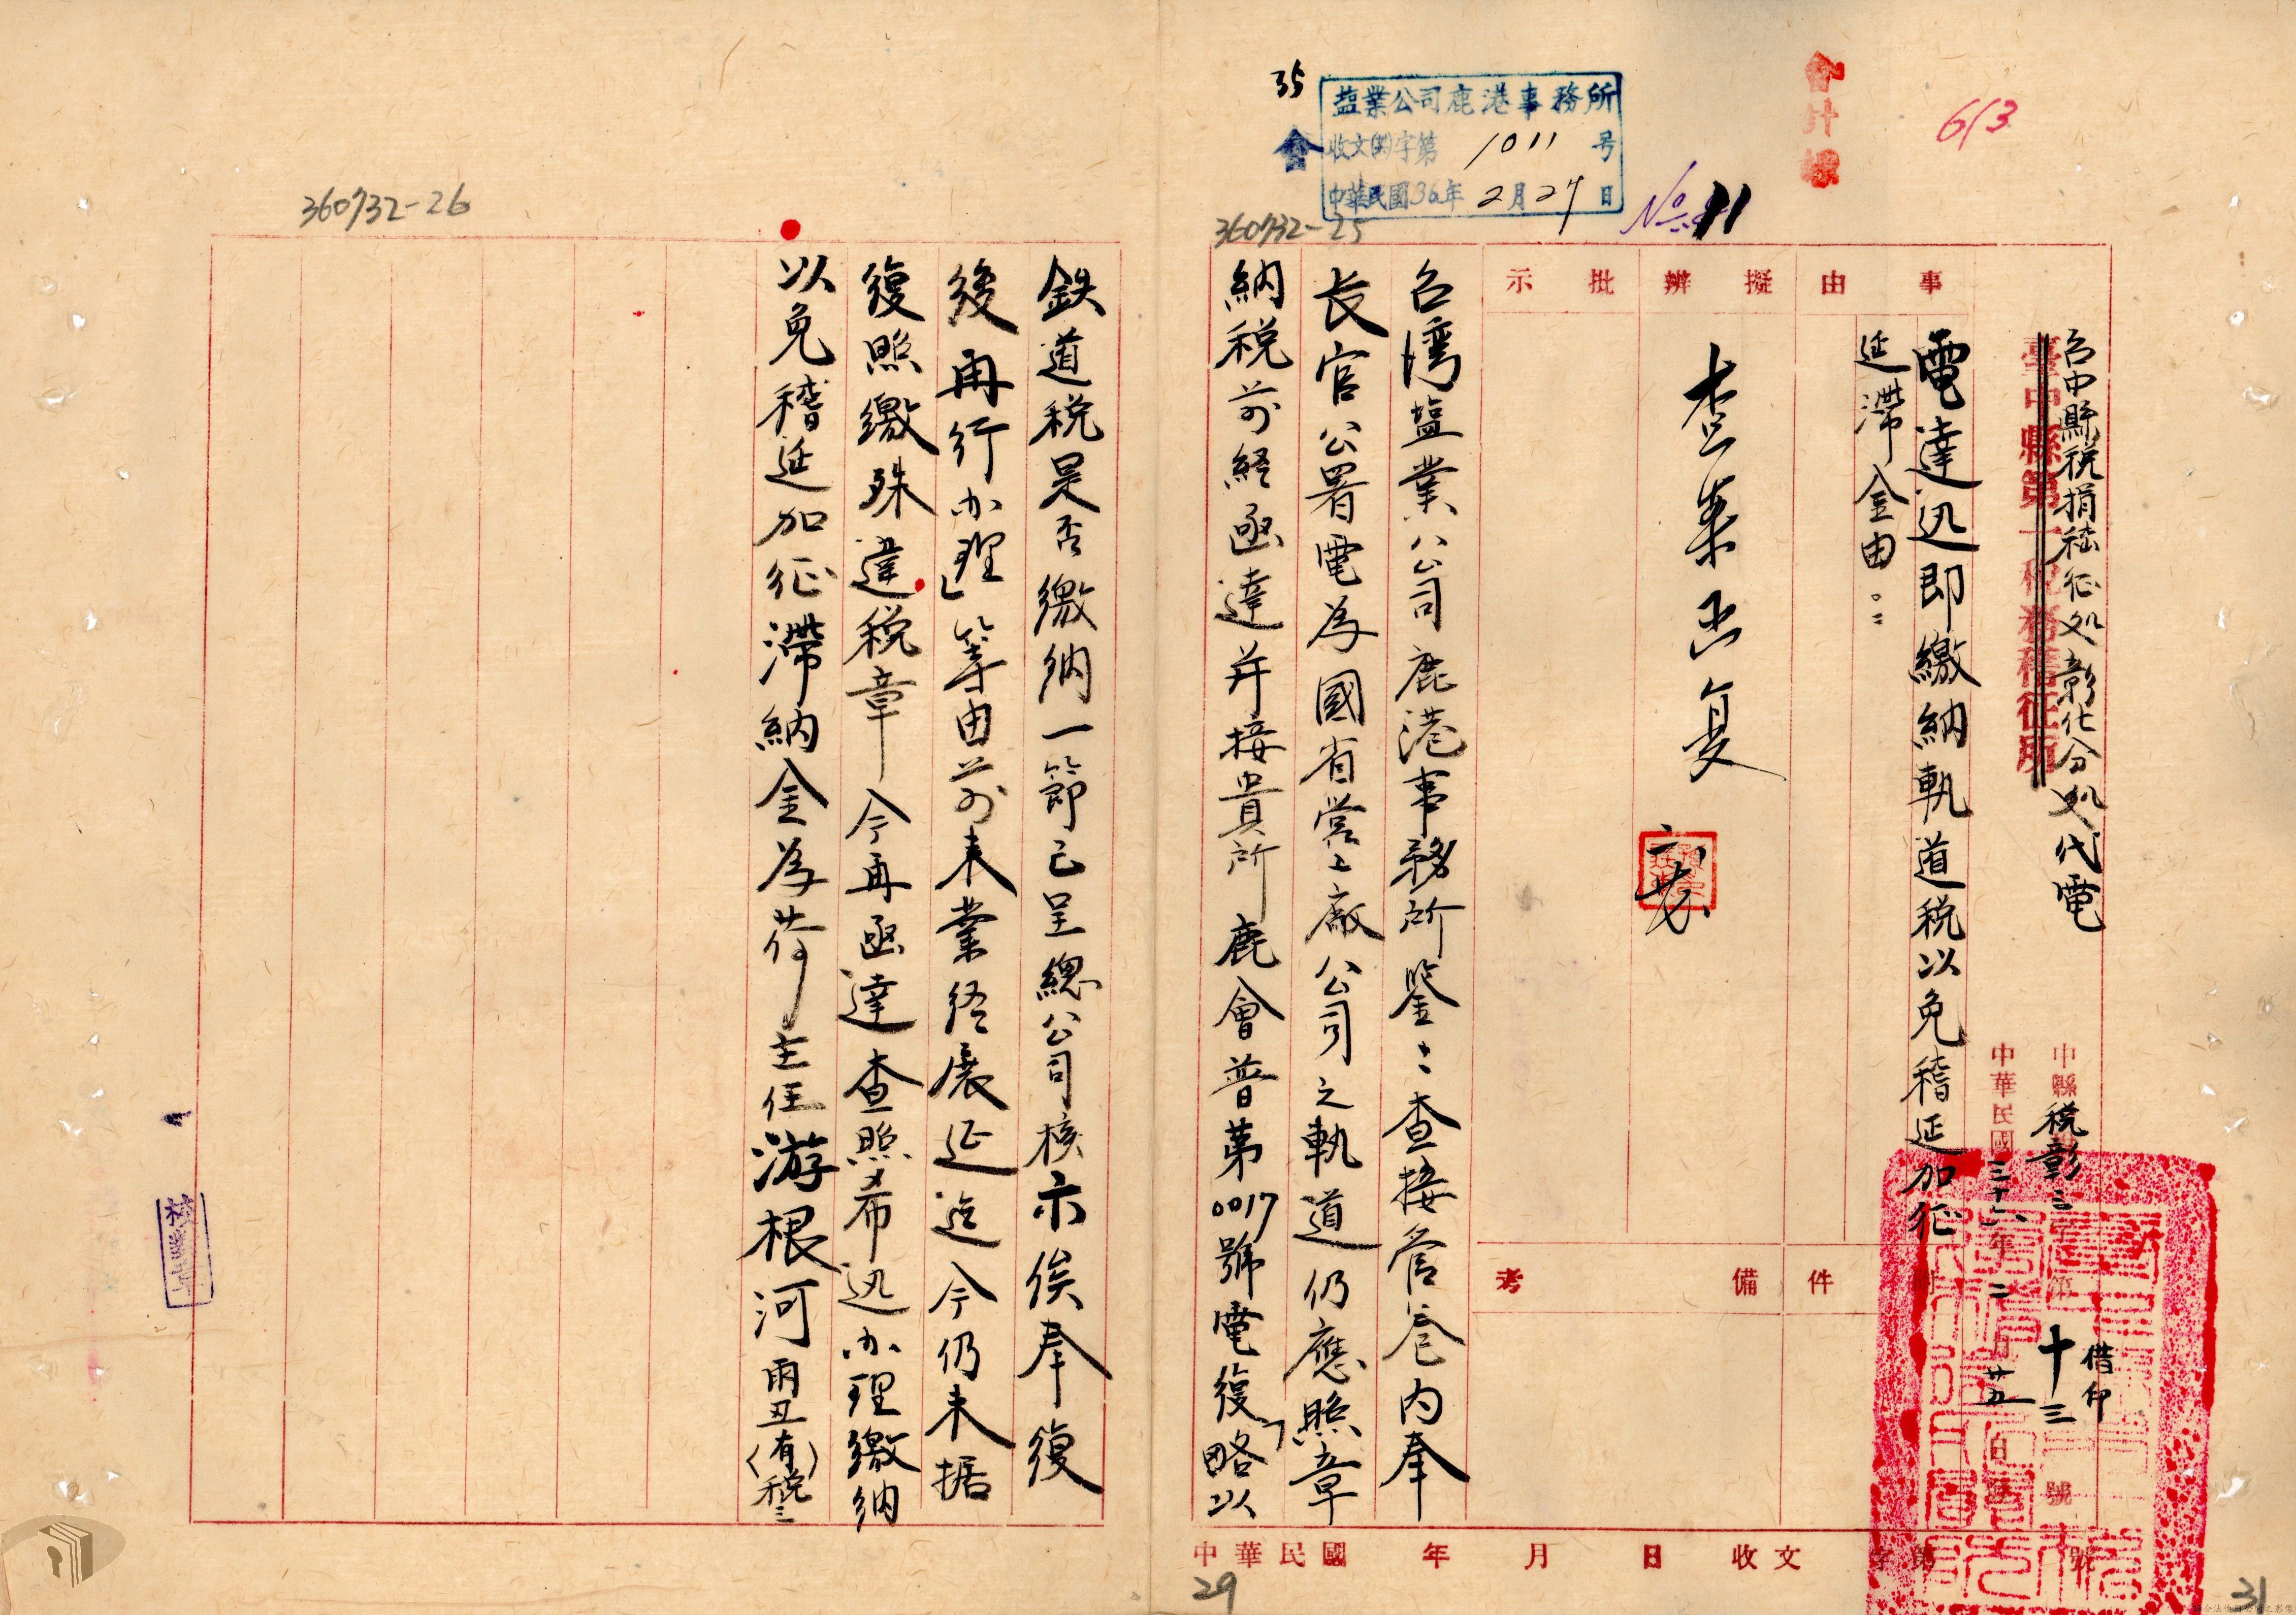 613
會計課
35
會
塩業公司鹿港事務所
收文(36)字第1011号
中華民國36年2月27日
No. 11
360732-25
台中縣稅捐稽征処彰化分処代電
臺中縣第一稅務稽征所
中縣稅彰三字第十三號
借印
中華民國三十六年二月廿五日
事由
電達迅即繳納軌道稅以免稽延加征
延滯金由
擬辦
批示
查案呈复
附件
備考
台湾塩業公司鹿港事務所鑒：查接管卷內奉
長官公署電為國省營工廠公司之軌道仍應照章
納稅前經函達并接貴所鹿會普第0017號電復「略以
中華民國 年 月 日 收文 字第 號
29
31
360732-26
鉄道稅是否繳納一節已呈總公司核示俟奉復
後再行办理」等由前來業经展延迄今仍未据
復照繳殊違稅章今再函達查照希迅办理繳納
以免稽延加征滯納金為荷主任游根河丑有(稅三)